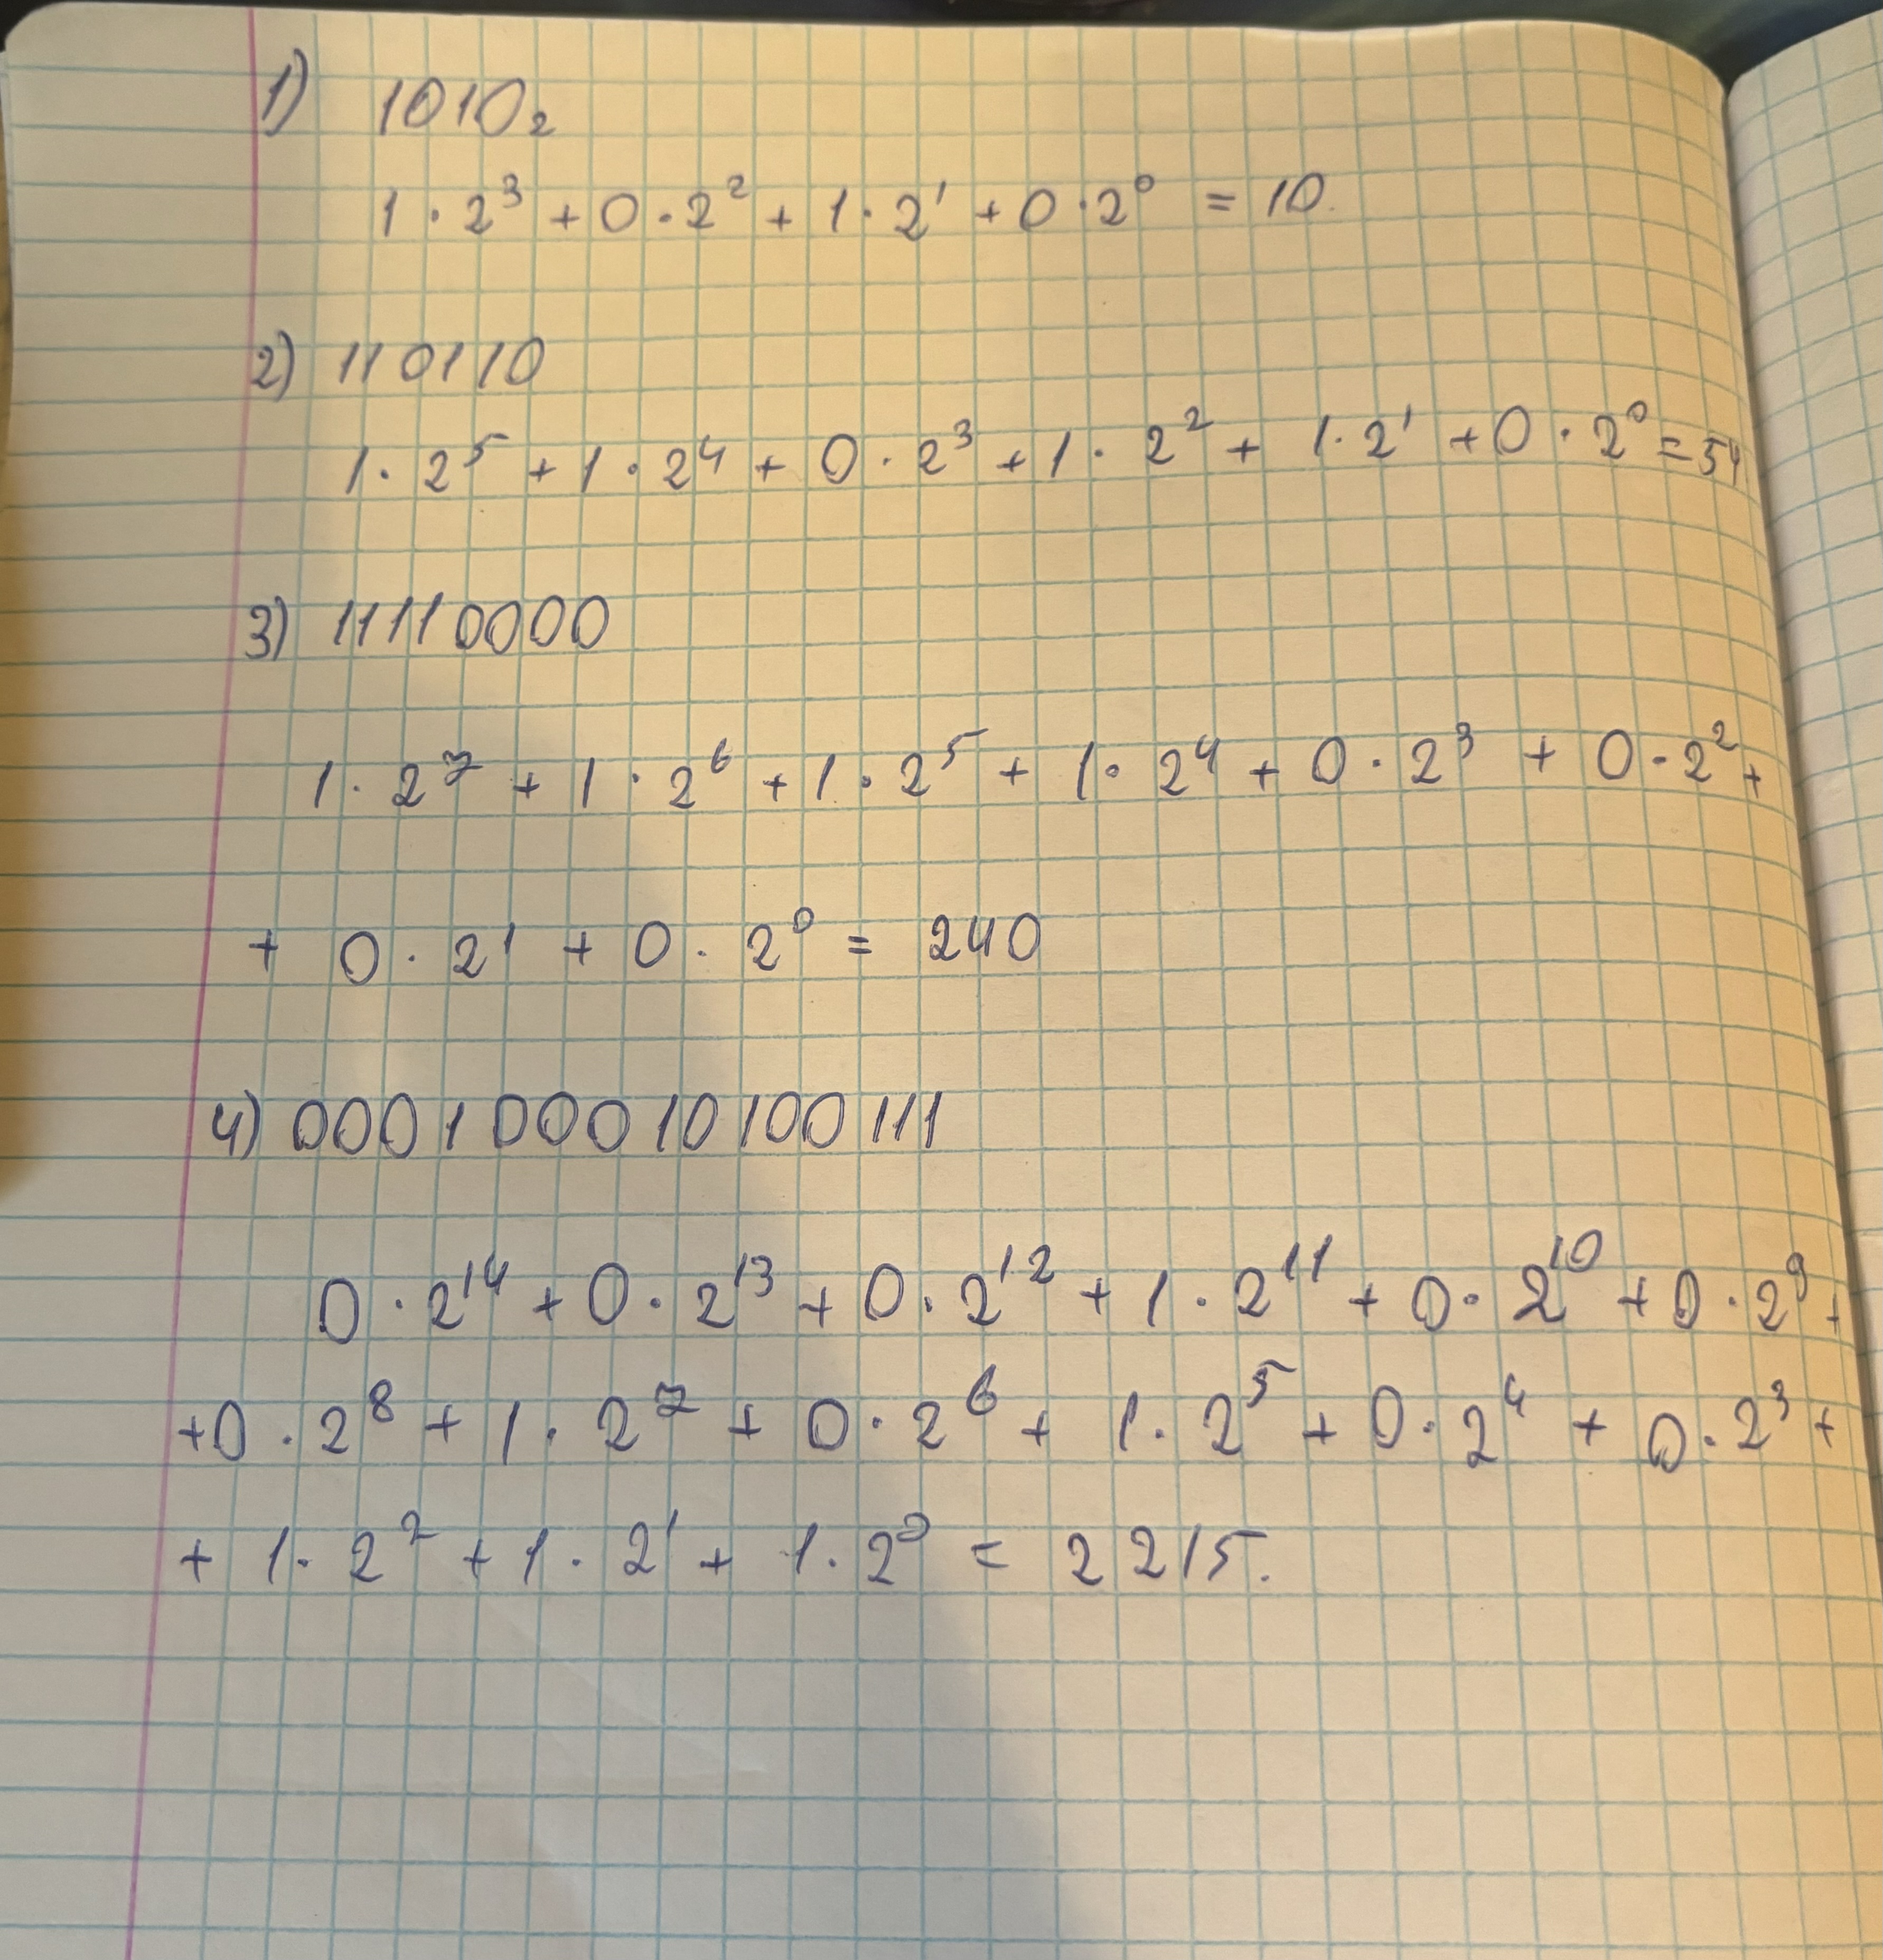 1) 1010₂
1 · 2³ + 0 · 2² + 1 · 2¹ + 0 · 2⁰ = 10.
2) 110110
1 · 2⁵ + 1 · 2⁴ + 0 · 2³ + 1 · 2² + 1 · 2¹ + 0 · 2⁰ = 54
3) 11110000
1 · 2⁷ + 1 · 2⁶ + 1 · 2⁵ + 1 · 2⁴ + 0 · 2³ + 0 · 2² +
+ 0 · 2¹ + 0 · 2⁰ = 240
4) 000100010100111
0 · 2¹⁴ + 0 · 2¹³ + 0 · 2¹² + 1 · 2¹¹ + 0 · 2¹⁰ + 0 · 2⁹ +
+ 0 · 2⁸ + 1 · 2⁷ + 0 · 2⁶ + 1 · 2⁵ + 0 · 2⁴ + 0 · 2³ +
+ 1 · 2² + 1 · 2¹ + 1 · 2⁰ = 2215.